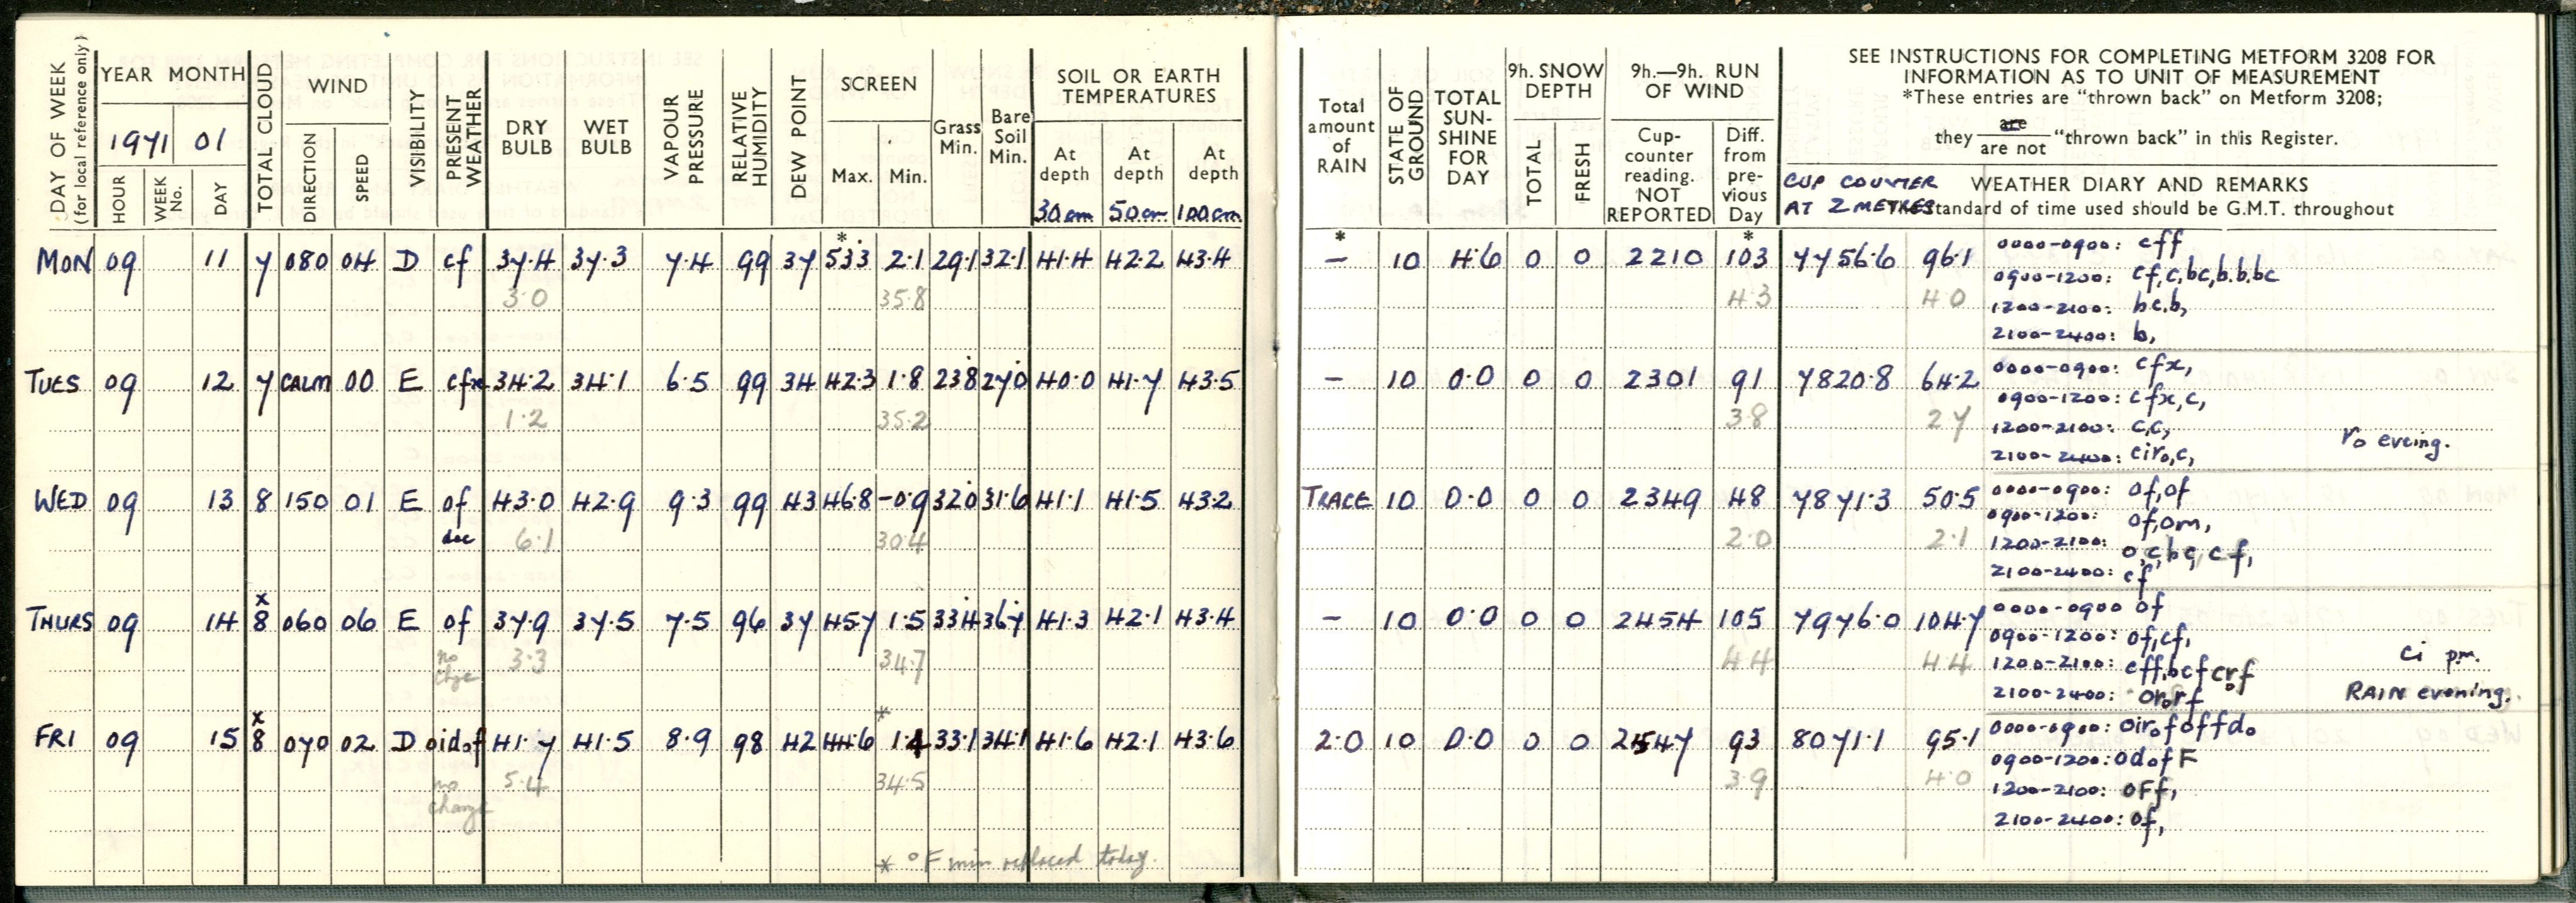 DAY OF WEEK
(for local reference only)
YEAR MONTH
1971 01
HOUR
WEEK No.
DAY
TOTAL CLOUD
WIND
DIRECTION
SPEED
VISIBILITY
PRESENT WEATHER
DRY BULB
WET BULB
VAPOUR PRESSURE
RELATIVE HUMIDITY
DEW POINT
SCREEN
Max. Min.
Grass Min.
Bare Soil Min.
SOIL OR EARTH TEMPERATURES
At depth 30cm
At depth 50cm
At depth 100cm
MON 09 11 7 080 04 D cf 37.4 37.3 7.4 99 37 * 53.3 2.1 29.1 32.1 41.4 42.2 43.4
3.0 35.8
TUES 09 12 7 CALM 00 E cfx 34.2 34.1 6.5 99 34 42.3 1.8 23.8 27.0 40.0 41.7 43.5
1.2 35.2
WED 09 13 8 150 01 E of 43.0 42.9 9.3 99 43 46.8 -0.9 32.0 31.6 41.1 41.5 43.2
6.1 30.4
THURS 09 14 x 8 060 06 E of 37.9 37.5 7.5 96 37 45.7 1.5 33.4 36.7 41.3 42.1 43.4
no chge 3.3 34.7
FRI 09 15 x 8 070 02 D oidof 41.7 41.5 8.9 98 42 44.6 * 1.4 33.1 34.1 41.6 42.1 43.6
no change 5.4 34.5
* °F min replaced today.
Total amount of RAIN
STATE OF GROUND
TOTAL SUN-SHINE FOR DAY
9h. SNOW DEPTH
TOTAL
FRESH
9h.—9h. RUN OF WIND
Cup-counter reading. NOT REPORTED
Diff. from pre-vious Day
SEE INSTRUCTIONS FOR COMPLETING METFORM 3208 FOR
INFORMATION AS TO UNIT OF MEASUREMENT
*These entries are "thrown back" on Metform 3208;
they are / are not "thrown back" in this Register.
CUP COUNTER AT 2 METRES
WEATHER DIARY AND REMARKS
The standard of time used should be G.M.T. throughout
* — 10 4.6 0 0 2210 * 103 7756.6 96.1
4.3 4.0
0000-0900: cff
0900-1200: cf,c,bc,b.b.bc
1200-2100: bc.b,
2100-2400: b,
— 10 0.0 0 0 2301 91 7820.8 64.2
3.8 2.7
0000-0900: cfx,
0900-1200: cfx,c,
1200-2100: c,c,
2100-2400: ciro,c,
ro eveing.
TRACE 10 0.0 0 0 2349 48 7871.3 50.5
2.0 2.1
0000-0900: of,of
0900-1200: of,om,
1200-2100: o,c,bc,cf,
2100-2400: cf
— 10 0.0 0 0 2454 105 7976.0 104.7
4.4 4.4
0000-0900 of
0900-1200: of,cf,
1200-2100: cff,bcfcrof
2100-2400: ororf
ci pm.
RAIN evening.
2.0 10 0.0 0 0 2547 93 8071.1 95.1
3.9 4.0
0000-0900: oirofoffdo
0900-1200: odofF
1200-2100: oFf,
2100-2400: of,